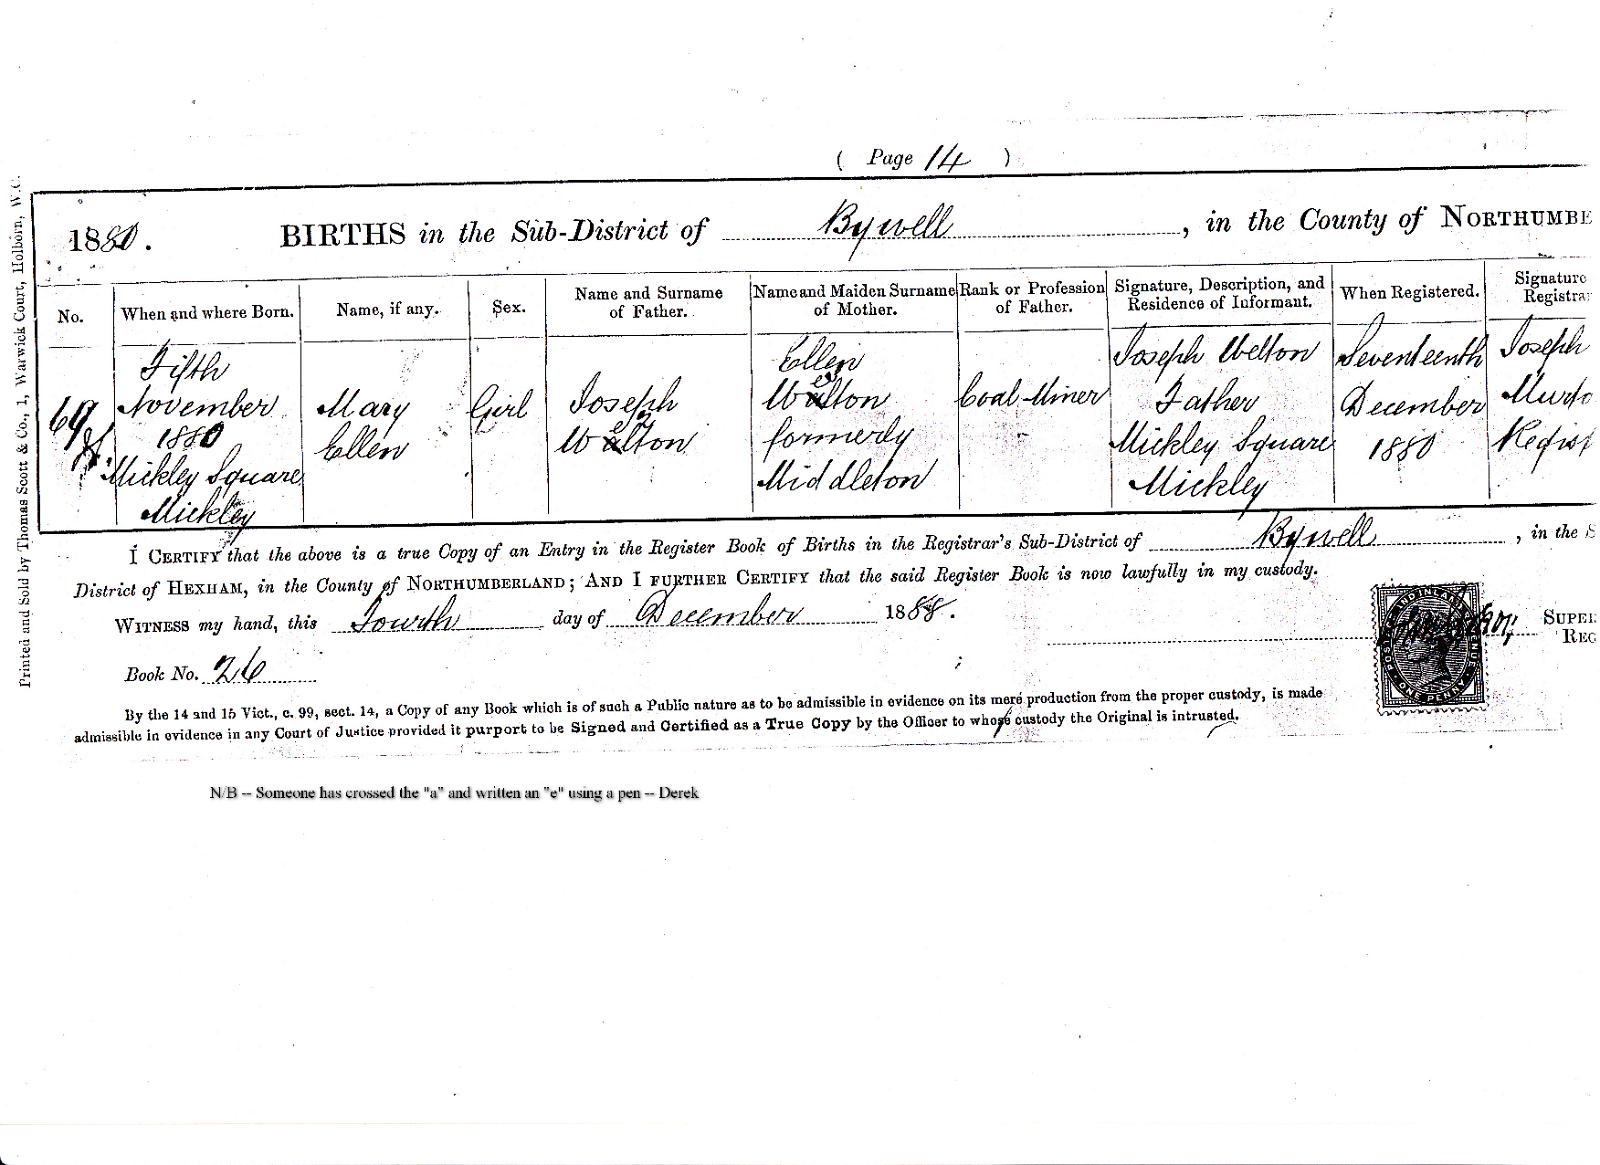 ( Page 14 )
1880. BIRTHS in the Sub-District of Bywell, in the County of NORTHUMBE
No.
When and where Born.
Name, if any.
Sex.
Name and Surname
of Father.
Name and Maiden Surname
of Mother.
Rank or Profession
of Father.
Signature, Description, and
Residence of Informant.
When Registered.
Signature
Registra
69
Fifth
November
1880
Mickley Square
Mickley
Mary
Ellen
Girl
Joseph
Welton
Ellen
Welton
formerly
Middleton
Coal Miner
Joseph Welton
Father
Mickley Square
Mickley
Seventeenth
December
1880
Joseph
Murdo
Regist
I CERTIFY that the above is a true Copy of an Entry in the Register Book of Births in the Registrar's Sub-District of Bywell, in the S
District of HEXHAM, in the County of NORTHUMBERLAND; AND I FURTHER CERTIFY that the said Register Book is now lawfully in my custody.
WITNESS my hand, this Fourth day of December 1888.
SUPER
REG
POSTAGE AND INLAND REVENUE
ONE PENNY
Book No. 26
By the 14 and 15 Vict., c. 99, sect. 14, a Copy of any Book which is of such a Public nature as to be admissible in evidence on its mere production from the proper custody, is made
admissible in evidence in any Court of Justice provided it purport to be Signed and Certified as a True Copy by the Officer to whose custody the Original is intrusted.
Printed and Sold by Thomas Scott & Co., 1, Warwick Court, Holborn, W.C.
N/B -- Someone has crossed the "a" and written an "e" using a pen -- Derek